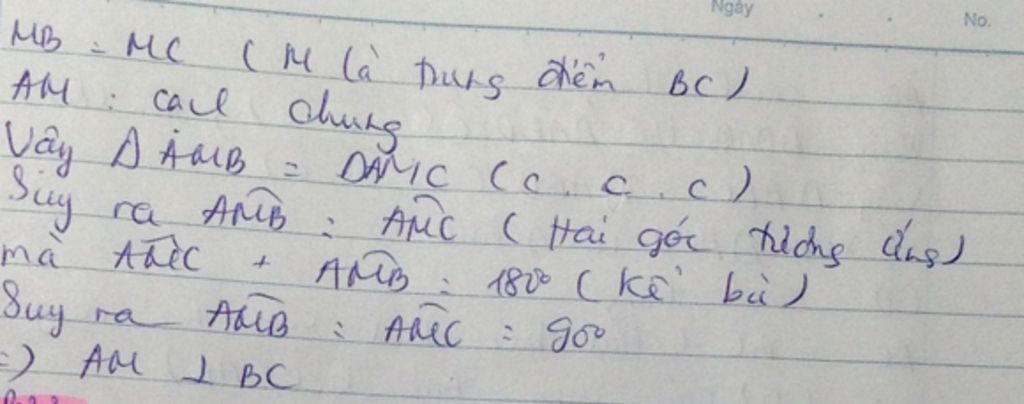 Ngày No.
MB = MC ( M là trung điểm BC )
AM : cạnh chung
Vậy Δ AMB = ΔAMC ( c . c . c )
Suy ra AMB = AMC ( Hai góc tương ứng )
mà AMC + AMB = 180° ( kề bù )
Suy ra AMB = AMC = 90°
=) AM ⊥ BC